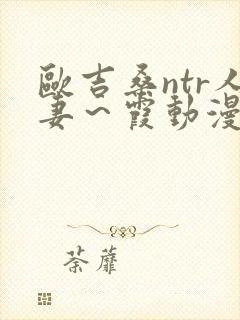 歐吉桑ntr人
妻～霞動漫
荼蘼